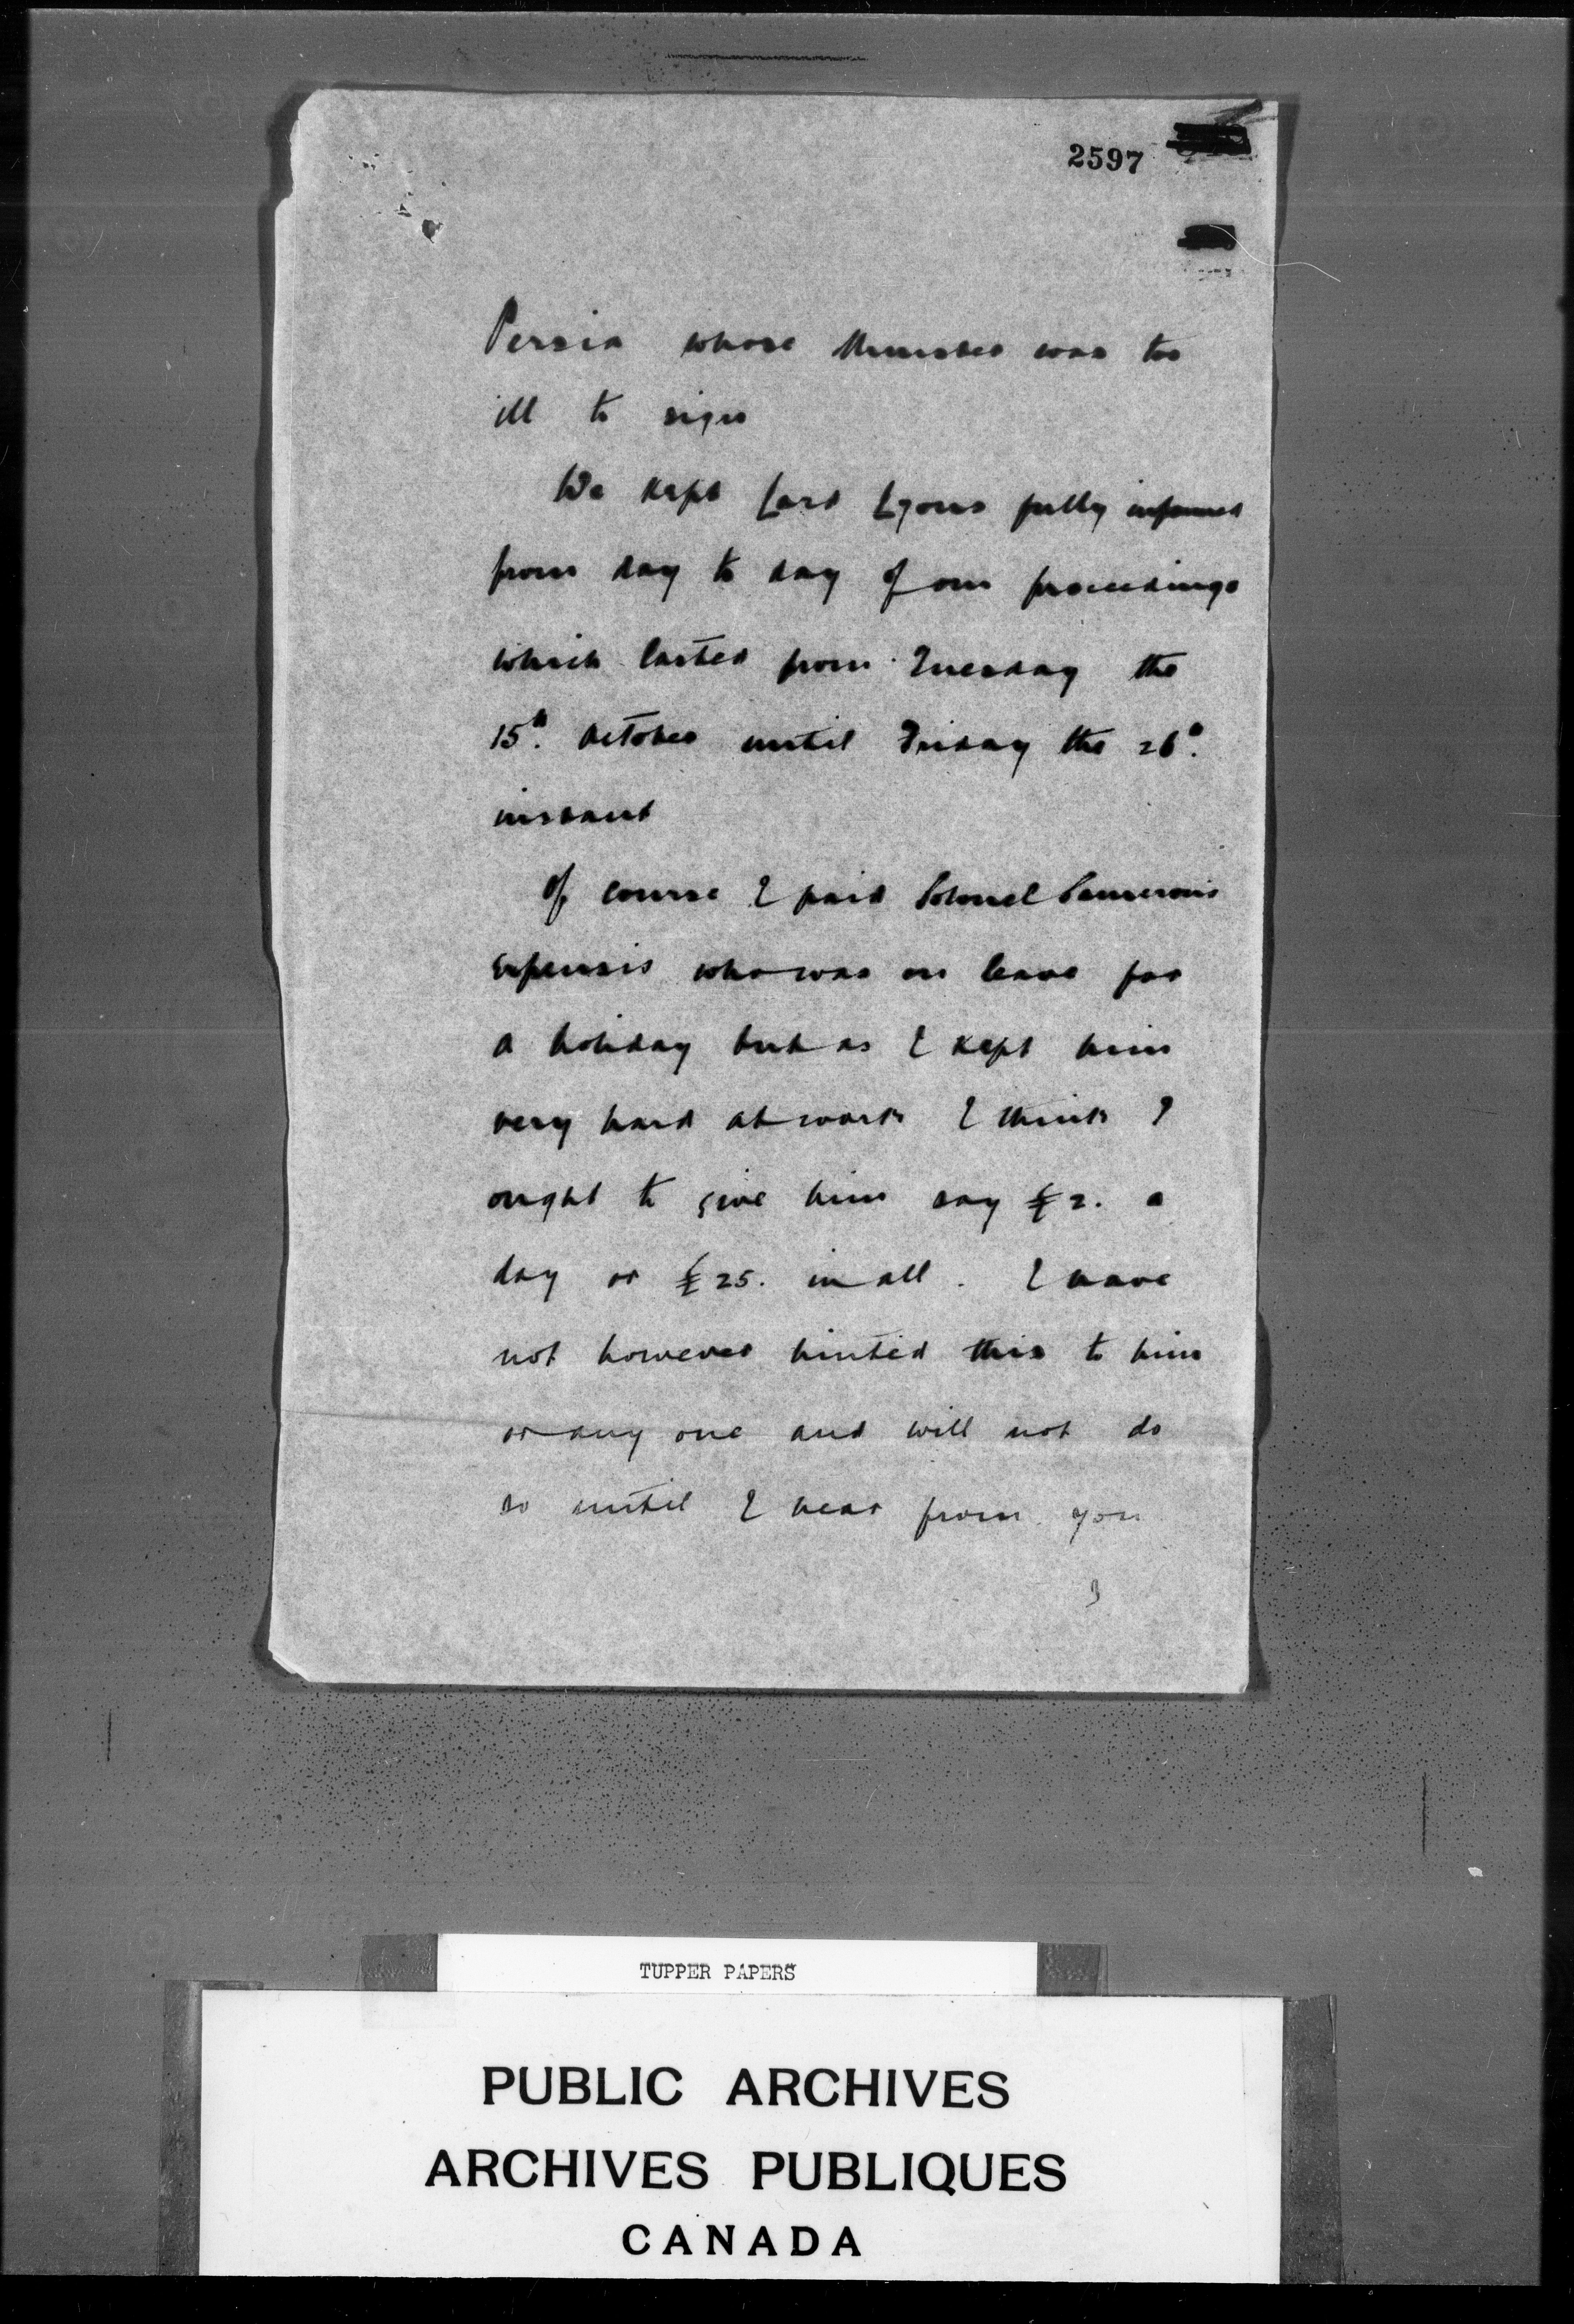 2597
Persia whose Minister was too
ill to sign
We kept Lord Lyons fully informed
from day to day of our proceedings
which lasted from Tuesday the
15th. October until Friday the 26th.
instant
Of course I paid Colonel Cameron's
expenses who was on leave for
a holiday but as I kept him
very hard at work I think I
ought to give him say £2. a
day or £25. in all. I have
not however hinted this to him
or any one and will not do
so until I hear from you
3
TUPPER PAPERS
PUBLIC ARCHIVES
ARCHIVES PUBLIQUES
CANADA